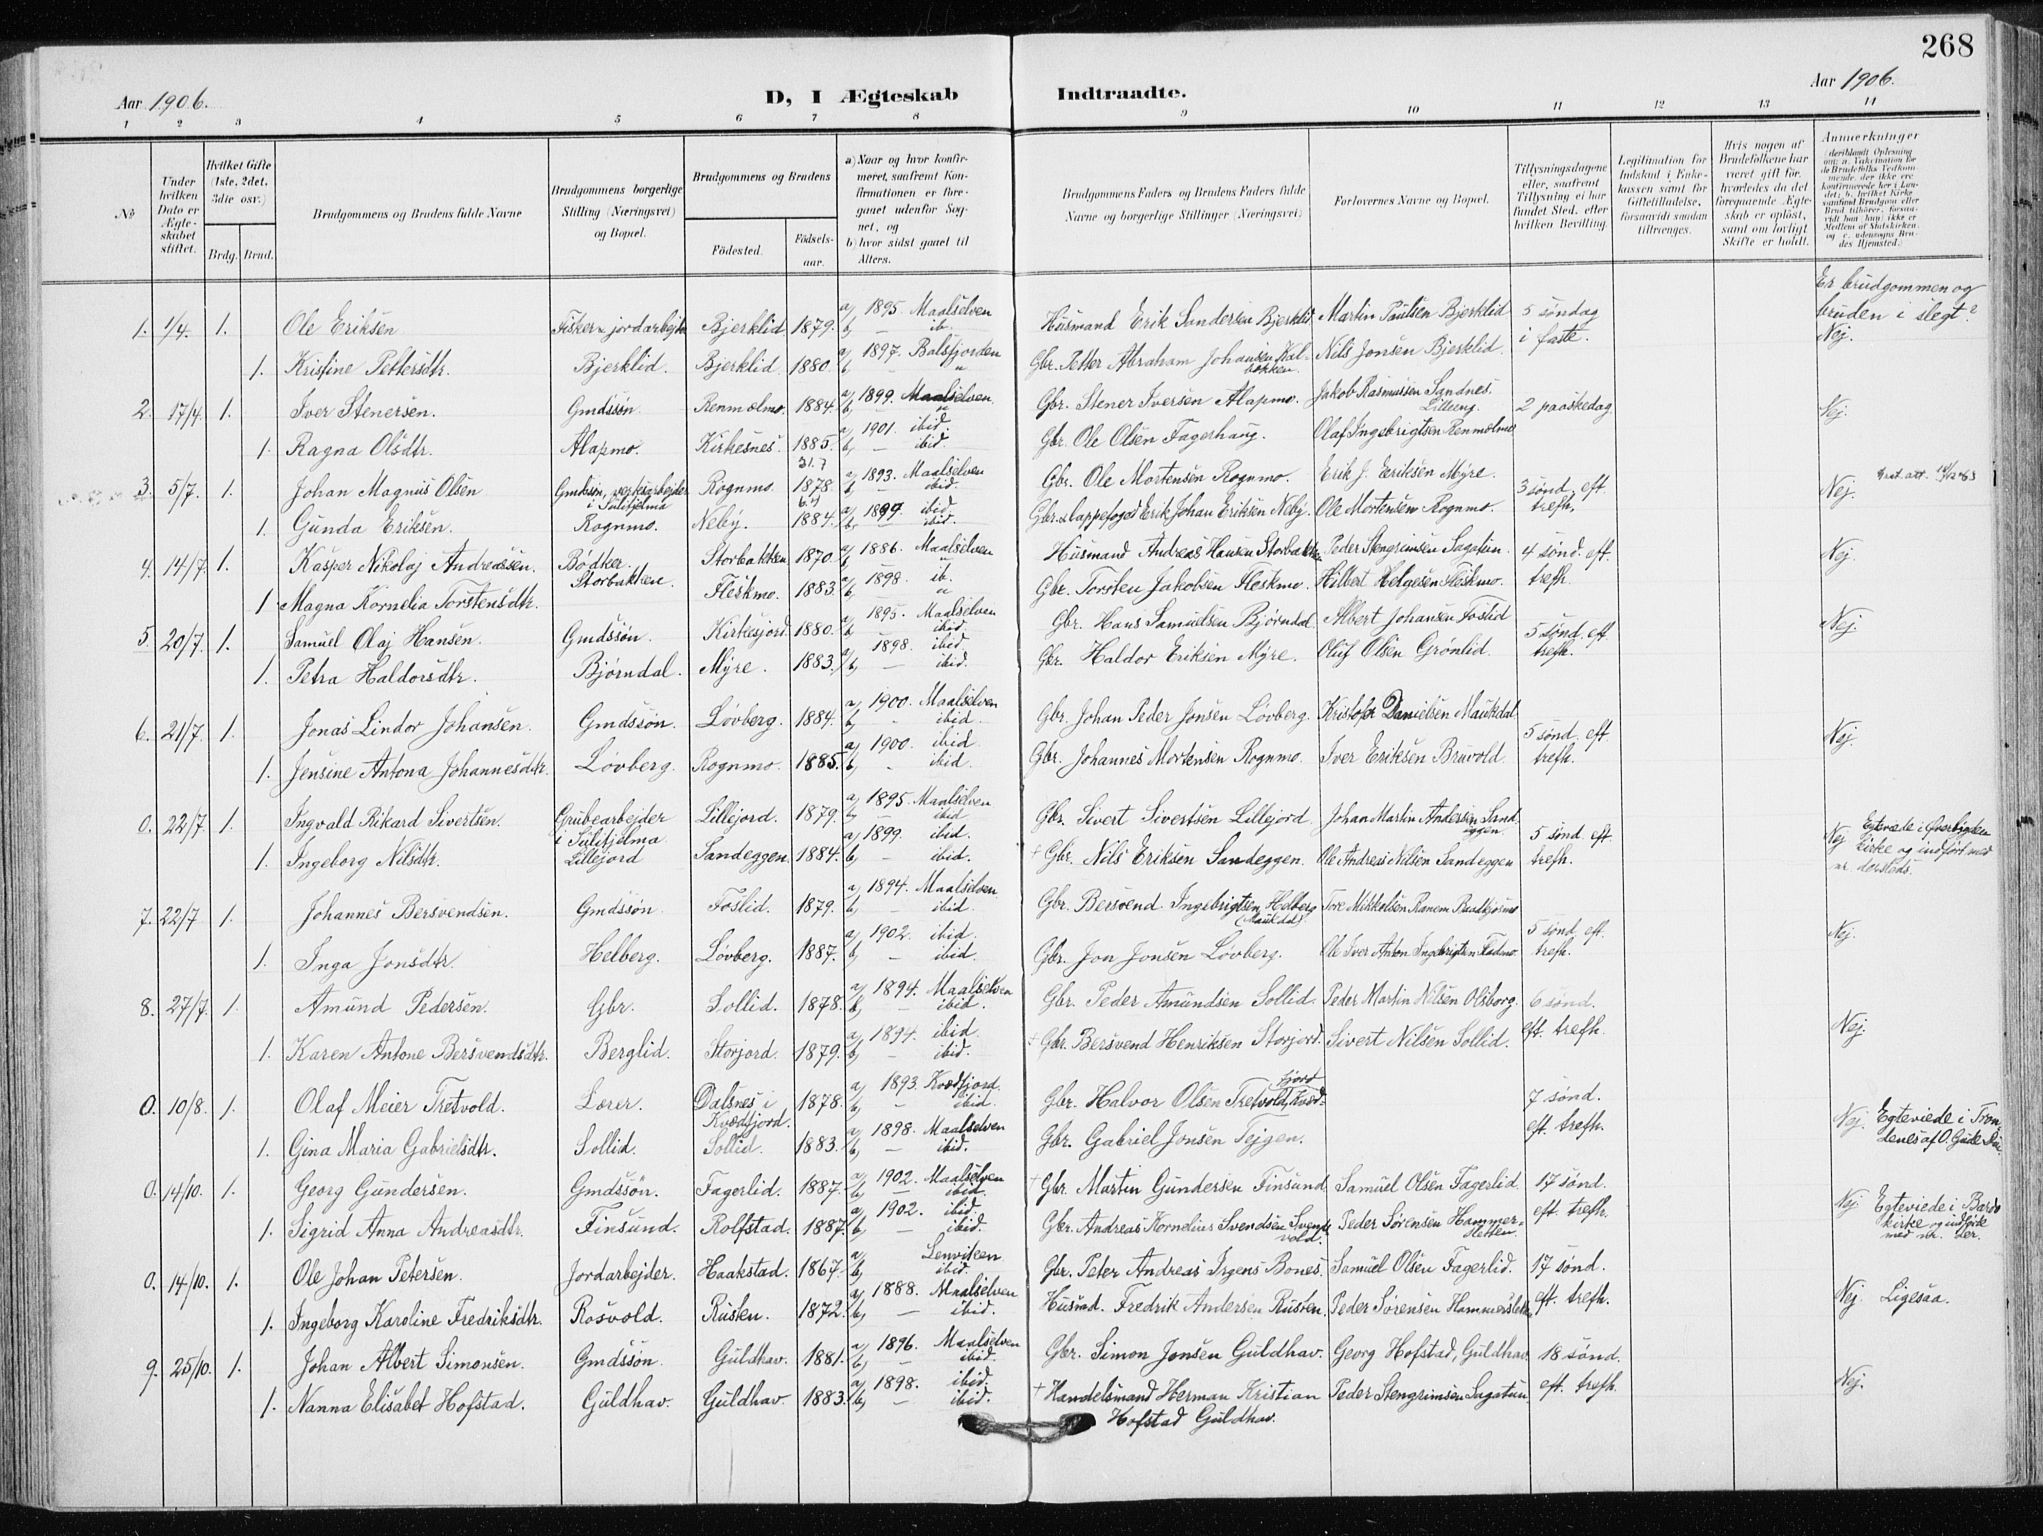 268
Aar 1906.
D, I Ægteskab Indtraadte.
Aar 1906.
1 2 3 4 5 6 7 8 9 10 11 12 13 14
No
Under hvilken Dato er Ægteskabet stiftet.
Hvilket Gifte (1ste, 2det, 3die osv.)
Brdg. Brud.
Brudgommens og Brudens fulde Navne
Brudgommens borgerlige Stilling (Næringsvei) og Bopæl.
Brudgommens og Brudens
Fødested. Fødsels-aar.
a) Naar og hvor konfirmeret, saafremt Konfirmationen er foregaaet udenfor Sognet, og
b) hvor sidst gaaet til Alters.
Brudgommens Faders og Brudens Faders fulde Navne og borgerlige Stillinger (Næringsvei)
Forlovernes Navne og Bopæl.
Tillysningsdagene eller, saafremt Tillysning ei har fundet Sted, efter hvilken Bevilling.
Legitimation for Indskud i Enkekassen samt for Giftetilladelse, forsaavidt saadan tiltrænges.
Hvis nogen af Brudefolkene har været gift før, hvorledes da det foregaaende Ægteskab er opløst, samt om lovligt Skifte er holdt.
Anmerkninger
(deriblandt Oplysning om: a. Vakcination for de Brudefolks Vedkommende, der ikke ere konfirmerede her i Landet; b. hvilket Kirkesamfund Brudgom eller Brud tilhører, forsaavidt han (hun) ikke er Medlem af Statskirken, og c. udensogns Brudes Hjemsted.)
Er brudgommen og bruden i slegt?
1. 1/4. 1. Ole Eriksen Fisker & jordarbejder Bjerklid 1879. a) 1895. Maalselven b) — ib. Husmand Erik Sandersen Bjerklid Martin Paulsen Bjerklid 5 søndag i faste. Nej.
1. Kristine Pettersdtr. Bjerklid. Bjerklid. 1880. a) 1897. Balsfjorden b) — " Gbr. Petter Abraham Johansen Kalbakken. Nils Jonsen Bjerklid.
2. 17/4. 1. Iver Stenersen. Gmdssøn Renmælmo. 1884. a) 1899. Maalselven b) — " Gbr. Stener Iversen Alapmo. Jakob Rasmussen Sandnes Lilleeng. 2 paaskedag Nej.
1. Ragna Olsdtr. Alapmo. Kirkesnes. 1885. a) 1901. ibid. b) — ibid. Gbr. Ole Olsen Fagerhaug. Olaf Ingebrigtsen Renmælmo
3. 5/7. 1. Johan Magnus Olsen Gmdssøn, verksarbejder i Sulitjelma Rognmo. 31.7 1878. a) 1893. Maalselven b) — ibid. Gbr. Ole Mortensen Rognmo. Erik J. Eriksen Myre. 3 sønd. eft. trefh. Nej.
1. Gunda Eriksen. Rognmo. Neby. 1884. a) 1899. ibid. b) — ibid. Gbr. & lappefoged Erik Johan Eriksen Neby. Ole Mortensen Rognmo.
4. 14/7. 1. Kasper Nikolaj Andreassen. Bødker Storbakken. Storbakken 1870. a) 1886. Maalselven b) — " Husmand Andreas Hansen Storbakken Peder Stengrimsen Sagatun. 4 sønd. eft. trefh. Nej.
1. Magna Kornelia Torstensdtr. Fleskmo. 1883. a) 1898. ib. b) — " Gbr. Torsten Jakobsen Fleskmo. Hilbert Helgesen Fleskmo.
5. 20/7. 1. Samuel Olaj Hansen. Gmdssøn. Kirkesjord. 1880. a) 1895. Maalselven b) — ibid. Gbr. Hans Samuelsen Bjørndal. Albert Johansen Foslid 5 sønd. eft. trefh. Nej.
1. Petra Haldorsdtr. Bjørndal. Myre. 1883. a) 1898. ibid. b) — ibid. Gbr. Haldor Eriksen Myre. Oluf Olsen Grønlid.
6. 21/7. 1. Jonas Lindor Johansen. Gmdssøn. Løvberg. 1884. a) 1900. Maalselven b) — ibid. Gbr. Johan Peder Jonsen Løvberg. Kristofer Danielsen Maukdal 5 sønd. eft. trefh. Nej.
1. Jensine Antona Johannesdtr. Løvberg. Rognmo. 1885. a) 1900. ibid. b) — ibid Gbr. Johannes Mortensen Rognmo. Iver Eriksen Bruvold.
0. 22/7. 1. Ingvald Rikard Sivertsen. Grubearbejder i Sulitjelma Lillejord Lillejord. 1879. a) 1895. Maalselven b) — ibid Gbr. Sivert Sivertsen Lillejord Johan Martin Andersen Sandeggen. 5 sønd. eft. trefh. Nej Egteviede i Øverbygden Kirke og indført med nr. dersteds.
1. Ingeborg Nilsdtr. Sandeggen. 1884. a) 1899. ibid. b) — ibid. † Gbr. Nils Eriksen Sandeggen. Ole Andreas Nilsen Sandeggen
7. 22/7 1. Johannes Bersvendsen. Gmdssøn Foslid. 1879. a) 1894. Maalselven b) — ibid. Gbr. Bersvend Ingebrigtsen Helberg (Maukdal) Tore Mikkelsen Ranem 5 sønd. eft. trefh. Nej.
1. Inga Jonsdtr. Helberg. Løvberg. 1887. a) 1902. ibid. b) — ibid. Gbr. Jon Jonsen Løvberg. Ole Iver Anton Ingebrigtsen
8. 27/7. 1. Amund Pedersen. Gbr. Sollid. 1878. a) 1894. Maalselven b) — ibid. Gbr. Peder Amundsen Sollid. Peder Martin Nilsen Olsborg. 6 sønd. eft. trefh. Nej
1. Karen Antone Bersvendsdtr. Berglid. Storjord. 1879. a) 1894. ibid b) — ibid. † Gbr. Bersvend Henriksen Storjord. Sivert Nilsen Sollid.
0. 10/8. 1. Olaf Meier Tretvold. Lærer. Dalsnes i Kvædfjord. 1878. a) 1893. Kvædfjord. b) — ibid. Gbr. Halvor Olsen Tretvold, Kvædfjord 7 sønd. eft. trefh. Nej. Egteviede i Trondenes af O. Gude
1. Gina Maria Gabrielsdtr. Sollid. Sollid. 1883. a) 1898. Maalselven b) — ibid. Gbr. Gabriel Jonsen Tejgen.
0. 14/10. 1. Georg Gundersen. Gmdssøn. Fagerlid. 1887. a) 1902. Maalselven b) — ibid. † Gbr. Martin Gundersen Finsund. Samuel Olsen Fagerlid. 17 sønd. eft. trefh. Nej Egteviede i Bardo kirke og indførte med nr. der.
1. Sigrid Anna Andreasdtr. Finsund. Rolfstad. 1887. a) 1902. ibid. b) — ibid. Gbr. Andreas Kornelius Svendsen Svendsvold. Peder Sørensen Hammersletten.
0. 14/10. 1. Ole Johan Petersen. Jordarbejder. Haakstad. 1867. a) Lenvikeen b) ibid. Gbr. Peter Andreas Irgens Bones. Samuel Olsen Fagerlid. 17 sønd. eft. trefh. Nej Ligesaa.
1. Ingeborg Karoline Fredriksdtr. Rosvold. Rusten. 1872. a) 1888. Maalselven b) — ibid. Husmd. Fredrik Andersen Rusten. Peder Sørensen Hammersletten
9. 25/10. 1. Johan Albert Simonsen. Gmdssøn. Guldhav. 1881. a) 1896. Maalselven b) — ibid. Gbr. Simon Jonsen Guldhav. Georg Hofstad, Guldhav. 18 sønd. eft. trefh. Nej.
1. Nanna Elisabet Hofstad. Guldhav. Guldhav. 1883. a) 1898. ibid. b) — ibid. † Handelsmand Herman Kristian Hofstad Guldhav. Peder Stengrimsen Sagatun